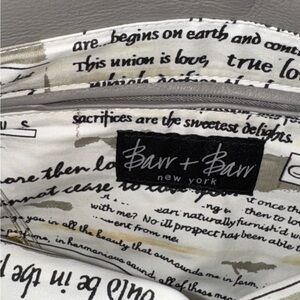 are..begins on earth and cont
This union is love, true lo
which
sacrifices are the sweetest delights.
U S
Barr + Barr
new york
ore then lo
nnot cease to
it once tha
then to lo
ean naturally furnish'd w
with me? No ill prospect has been able
ent from me.
you in all the beauty that surrounds me in fair
in harmonious sound, all of these ma
ould be in the